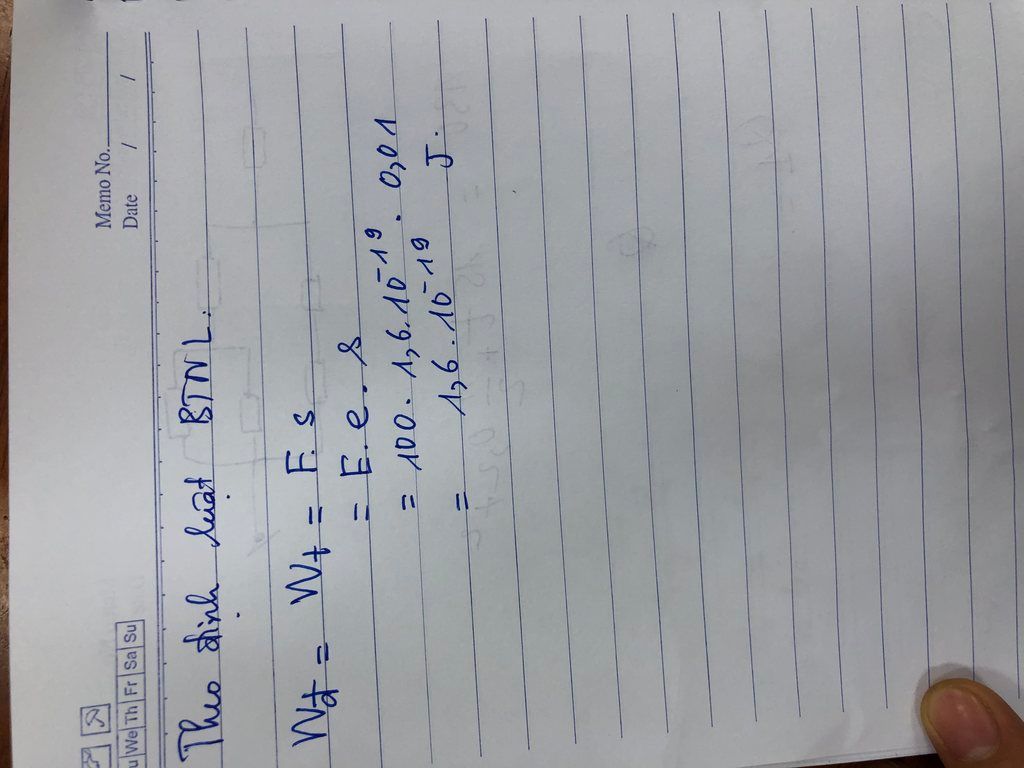 Memo No.
Date / /
We Th Fr Sa Su
Theo định luật BTNL.
Wđ = Wt = F.s
= E.e.s
= 100.1,6.10⁻¹⁹.0,01
= 1,6.10⁻¹⁹ J.